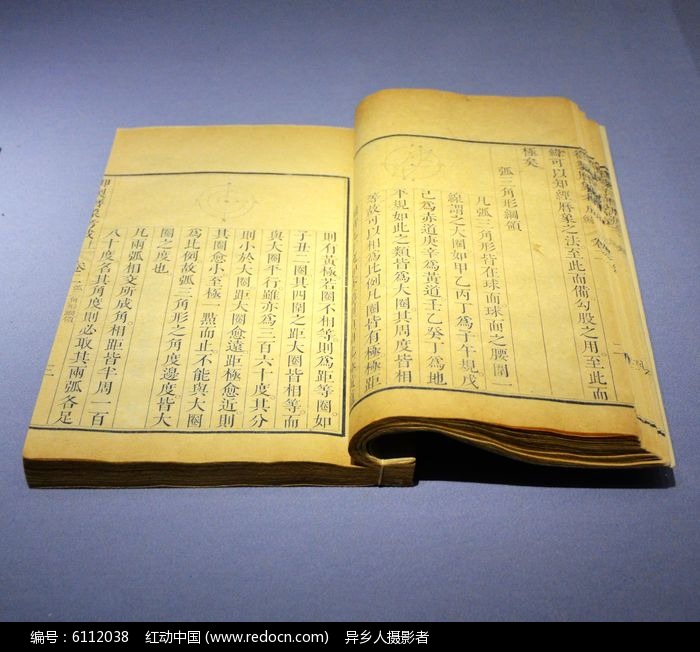 線可以知經曆象之法至此而備勾股之用至此而
極矣
弧三角形綱領
凡弧三角形皆在球面球面之腰圍一
線謂之大圈如甲乙丙丁為子午規戊
己為赤道庚辛為黃道壬乙癸丁為地
平規如此之類皆為大圈其周度皆相
等故可以相為比例凡圈皆有極極距
則有黃極若圈不相等則為距等圈如
子丑二圈其四圍之距大圈皆相等而
與大圈平行雖亦為三百六十度其分
則小於大圈距大圈愈遠距極愈近則
其圈愈小至極一㸃而止不能與大圈
為比例故弧三角形之角度邊度皆大
圈之度也
凡兩弧相交所成角相距皆半周一百
八十度名其角度則必取其兩弧各足
三
编号：6112038 红动中国 (www.redocn.com) 异乡人摄影者